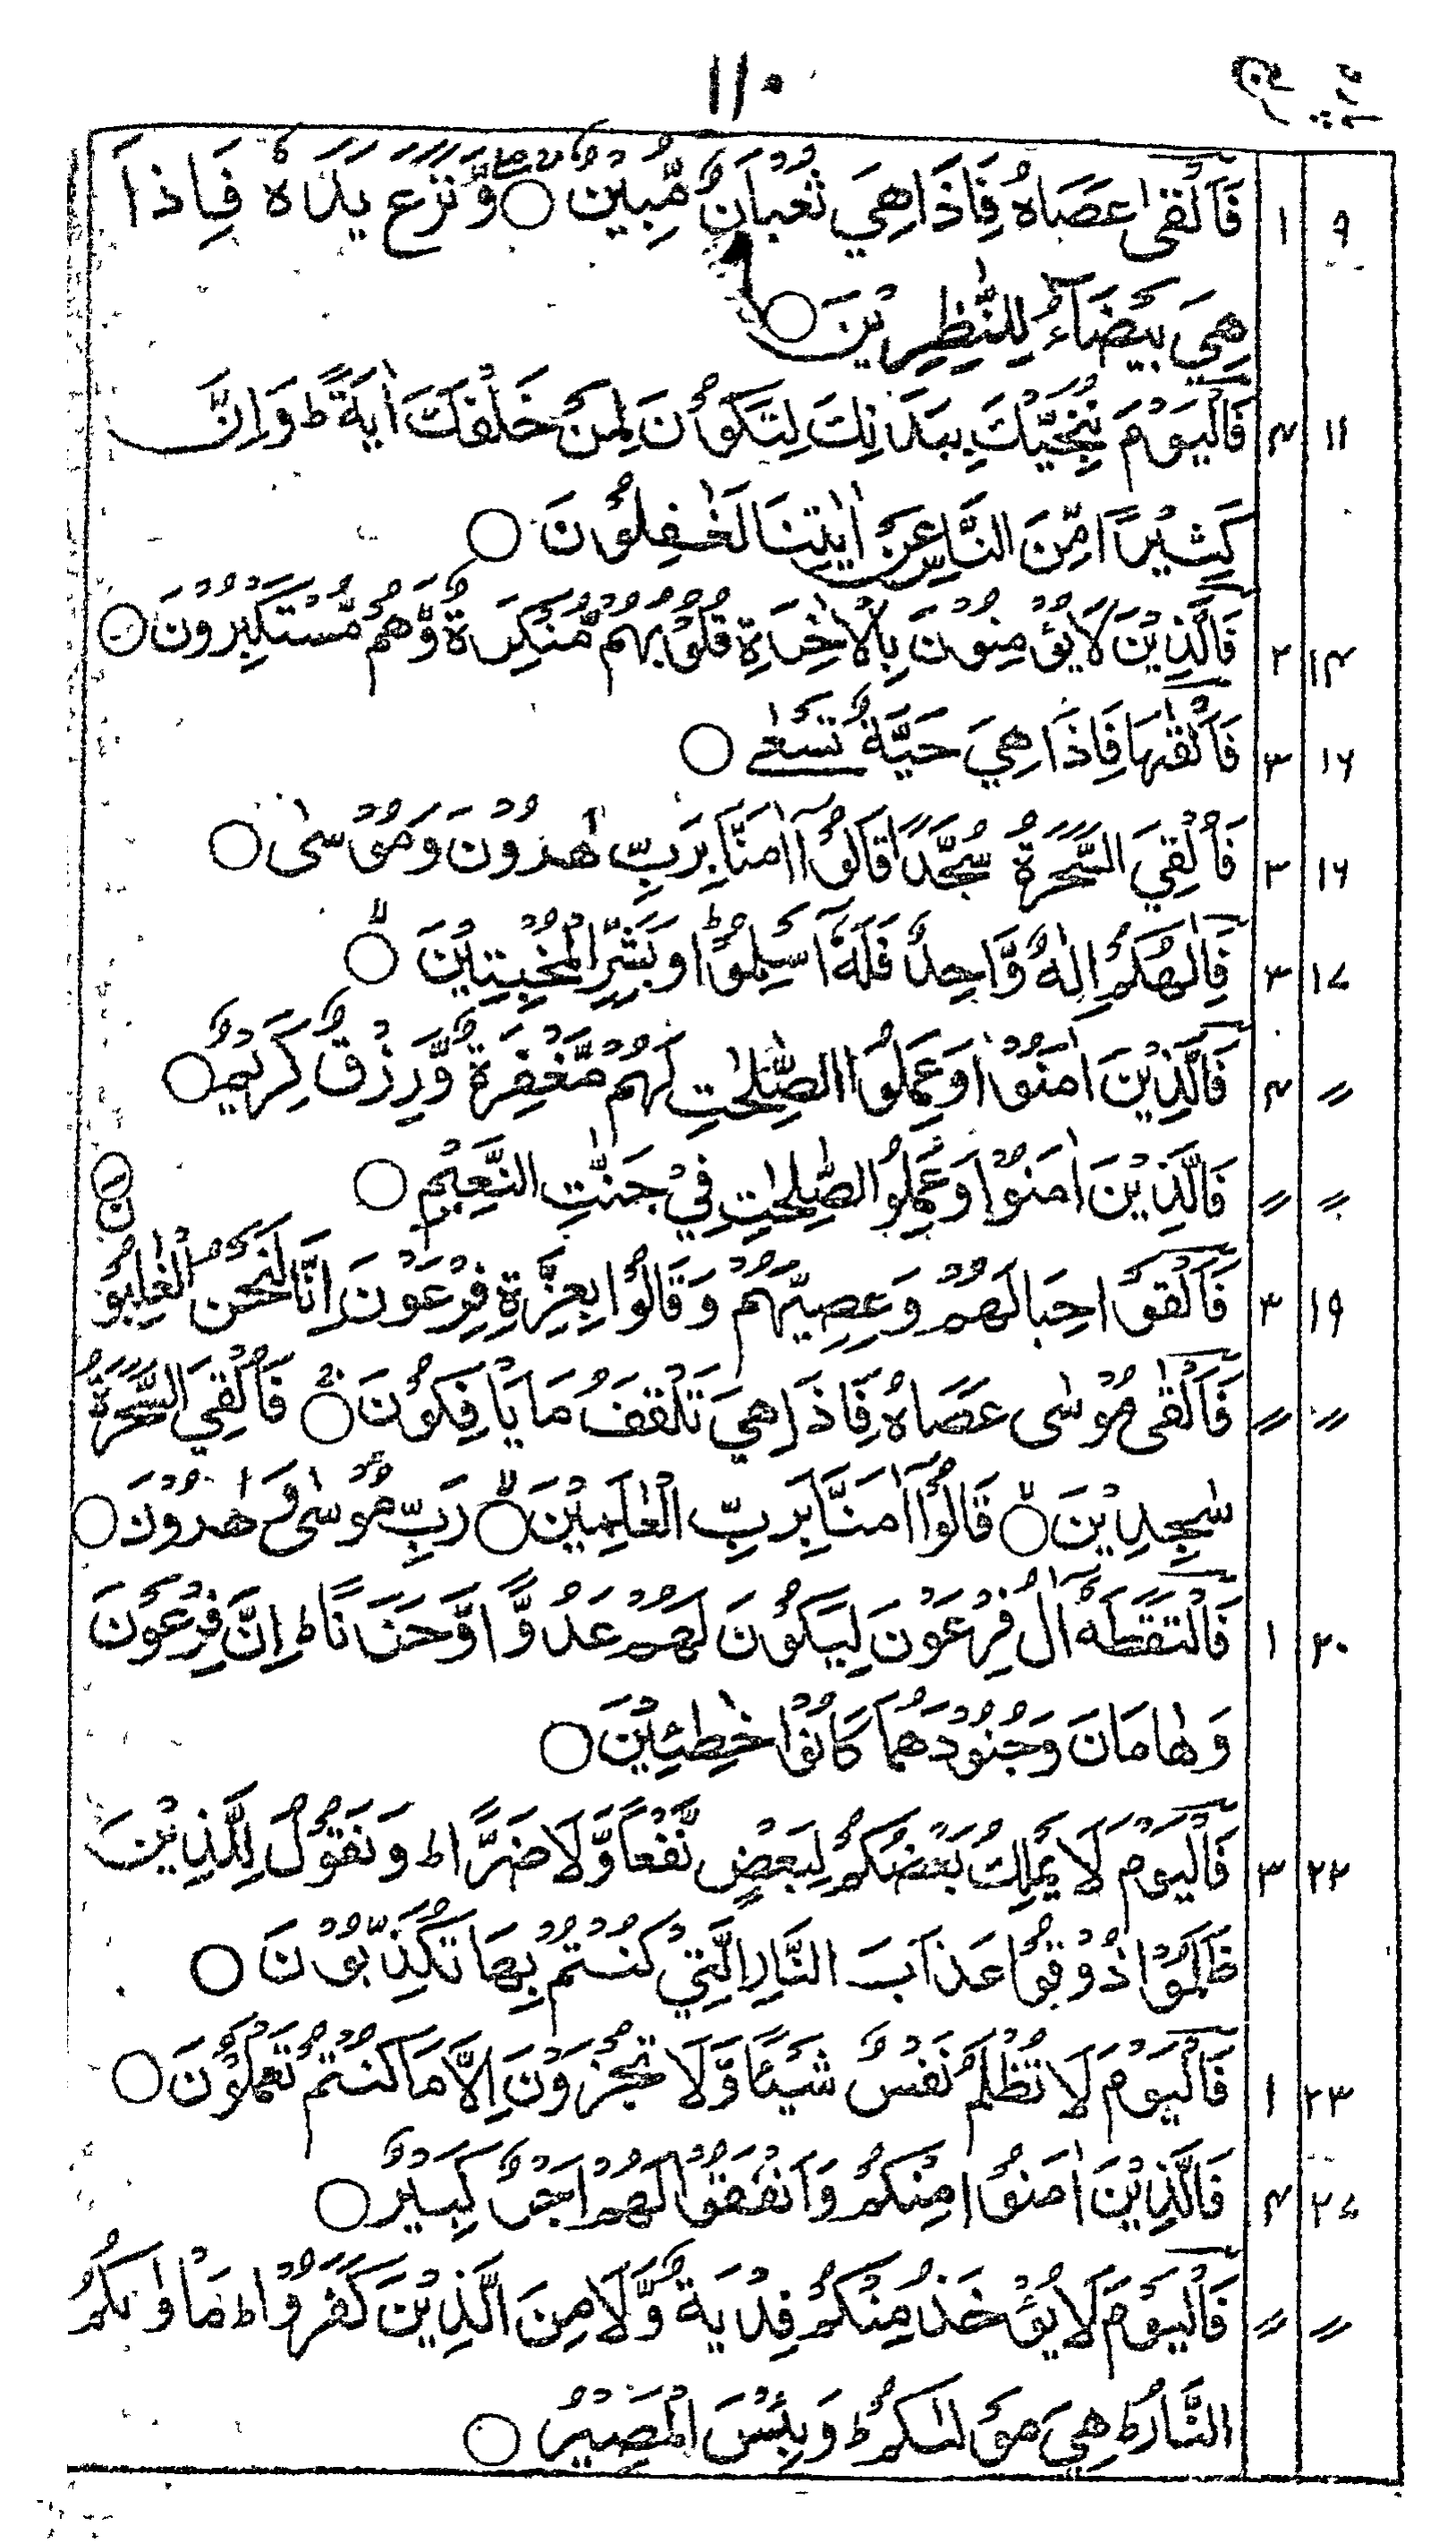 ۱۱۰
۹ ۱ فَاَلْقٰى عَصَاهُ فَاِذَا هِيَ ثُعْبَانٌ مُّبِيْنٌ ○ وَّنَزَعَ يَدَهٗ فَاِذَا
هِيَ بَيْضَآءُ لِلنّٰظِرِيْنَ ○
۱۱ ۴ فَالْيَوْمَ نُنَجِّيْكَ بِبَدَنِكَ لِتَكُوْنَ لِمَنْ خَلْفَكَ اٰيَةً ط وَاِنَّ
كَثِيْرًا مِّنَ النَّاسِ عَنْ اٰيٰتِنَا لَغٰفِلُوْنَ ○
۱۴ ۲ فَالَّذِيْنَ لَا يُؤْمِنُوْنَ بِالْاٰخِرَةِ قُلُوْبُهُمْ مُّنْكِرَةٌ وَّهُمْ مُّسْتَكْبِرُوْنَ ○
۱۶ ۳ فَاَلْقٰىهَا فَاِذَا هِيَ حَيَّةٌ تَسْعٰى ○
۱۶ ۳ فَاُلْقِيَ السَّحَرَةُ سُجَّدًا قَالُوْٓا اٰمَنَّا بِرَبِّ هٰرُوْنَ وَمُوْسٰى ○
۱۷ ۳ فَاِلٰهُكُمْ اِلٰهٌ وَّاحِدٌ فَلَهٗٓ اَسْلِمُوْا ط وَبَشِّرِ الْمُخْبِتِيْنَ ○
〃 ۴ فَالَّذِيْنَ اٰمَنُوْا وَعَمِلُوا الصّٰلِحٰتِ لَهُمْ مَّغْفِرَةٌ وَّرِزْقٌ كَرِيْمٌ ○
〃 〃 فَالَّذِيْنَ اٰمَنُوْا وَعَمِلُوا الصّٰلِحٰتِ فِيْ جَنّٰتِ النَّعِيْمِ ○
۱۹ ۳ فَاَلْقَوْا حِبَالَهُمْ وَعِصِيَّهُمْ وَقَالُوْا بِعِزَّةِ فِرْعَوْنَ اِنَّا لَنَحْنُ الْغٰلِبُوْنَ ○
〃 〃 فَاَلْقٰى مُوْسٰى عَصَاهُ فَاِذَا هِيَ تَلْقَفُ مَا يَاْفِكُوْنَ ○ فَاُلْقِيَ السَّحَرَةُ
سٰجِدِيْنَ ○ قَالُوْٓا اٰمَنَّا بِرَبِّ الْعٰلَمِيْنَ ○ رَبِّ مُوْسٰى وَ هٰرُوْنَ ○
۲۰ ۱ فَالْتَقَطَهٗٓ اٰلُ فِرْعَوْنَ لِيَكُوْنَ لَهُمْ عَدُوًّا وَّحَزَنًا ط اِنَّ فِرْعَوْنَ
وَهَامَانَ وَجُنُوْدَهُمَا كَانُوْا خٰطِئِيْنَ ○
۲۲ ۳ فَالْيَوْمَ لَا يَمْلِكُ بَعْضُكُمْ لِبَعْضٍ نَّفْعًا وَّلَا ضَرًّا ط وَنَقُوْلُ لِلَّذِيْنَ
ظَلَمُوْا ذُوْقُوْا عَذَابَ النَّارِ الَّتِيْ كُنْتُمْ بِهَا تُكَذِّبُوْنَ ○
۲۳ ۱ فَالْيَوْمَ لَا تُظْلَمُ نَفْسٌ شَيْئًا وَّلَا تُجْزَوْنَ اِلَّا مَا كُنْتُمْ تَعْمَلُوْنَ ○
۲۷ ۴ فَالَّذِيْنَ اٰمَنُوْا مِنْكُمْ وَاَنْفَقُوْا لَهُمْ اَجْرٌ كَبِيْرٌ ○
〃 〃 فَالْيَوْمَ لَا يُؤْخَذُ مِنْكُمْ فِدْيَةٌ وَّلَا مِنَ الَّذِيْنَ كَفَرُوْا ط مَاْوٰىكُمُ
النَّارُ ط هِيَ مَوْلٰىكُمْ ط وَبِئْسَ الْمَصِيْرُ ○